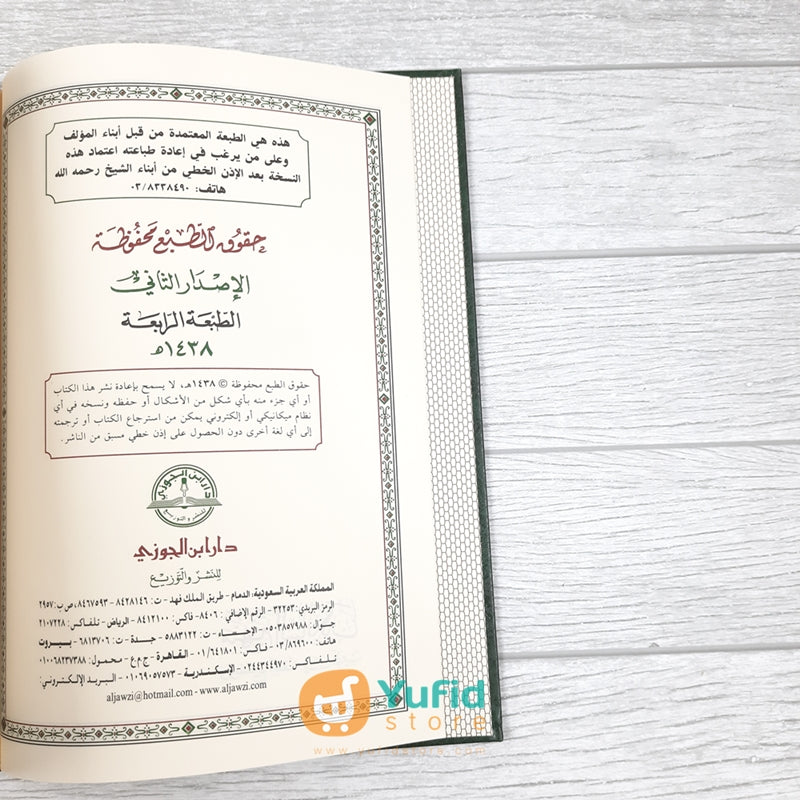 هذه هي الطبعة المعتمدة من قبل أبناء المؤلف
وعلى من يرغب في إعادة طباعته اعتماد هذه
النسخة بعد الإذن الخطي من أبناء الشيخ رحمه الله
هاتف: ٠٣/٨٣٣٨٤٩٠
حقوق الطبع محفوظة
الإصدار الثاني
الطبعة الرابعة
١٤٣٨هـ
حقوق الطبع محفوظة © ١٤٣٨هـ، لا يسمح بإعادة نشر هذا الكتاب
أو أي جزء منه بأي شكل من الأشكال أو حفظه ونسخه في أي
نظام ميكانيكي أو إلكتروني يمكن من استرجاع الكتاب أو ترجمته
إلى أي لغة أخرى دون الحصول على إذن خطي مسبق من الناشر.
دار ابن الجوزي
للنشر والتوزيع
دار ابن الجوزي
للنشر والتوزيع
المملكة العربية السعودية: الدمام - طريق الملك فهد - ت: ٨٤٢٨١٤٦ - ٨٤٦٧٥٩٣، ص ب: ٢٩٥٧
الرمز البريدي: ٣٢٢٥٣ - الرقم الإضافي: ٨٤٠٦ - فاكس: ٨٤١٢١٠٠ - الرياض - تلفاكس: ٢١٠٧٢٢٨
جوّال: ٠٥٠٣٨٥٧٩٨٨ - الإحساء - ت: ٥٨٨٣١٢٢ - جدة - ت: ٦٨١٣٧٠٦ - بيروت
هاتف: ٠٣/٨٦٩٦٠٠ - فاكس: ٠١/٦٤١٨٠١ - القاهرة - ج.م.ع - محمول: ٠١٠٠٦٨٢٣٧٣٨٨
تلفاكس: ٠٢٤٤٣٤٤٩٧٠ - الإسكندرية - ٠١٠٦٩٠٥٧٥٧٣ - البريد الإلكتروني:
aljawzi@hotmail.com - www.aljawzi.com
Yufid
store
www.yufidstore.com